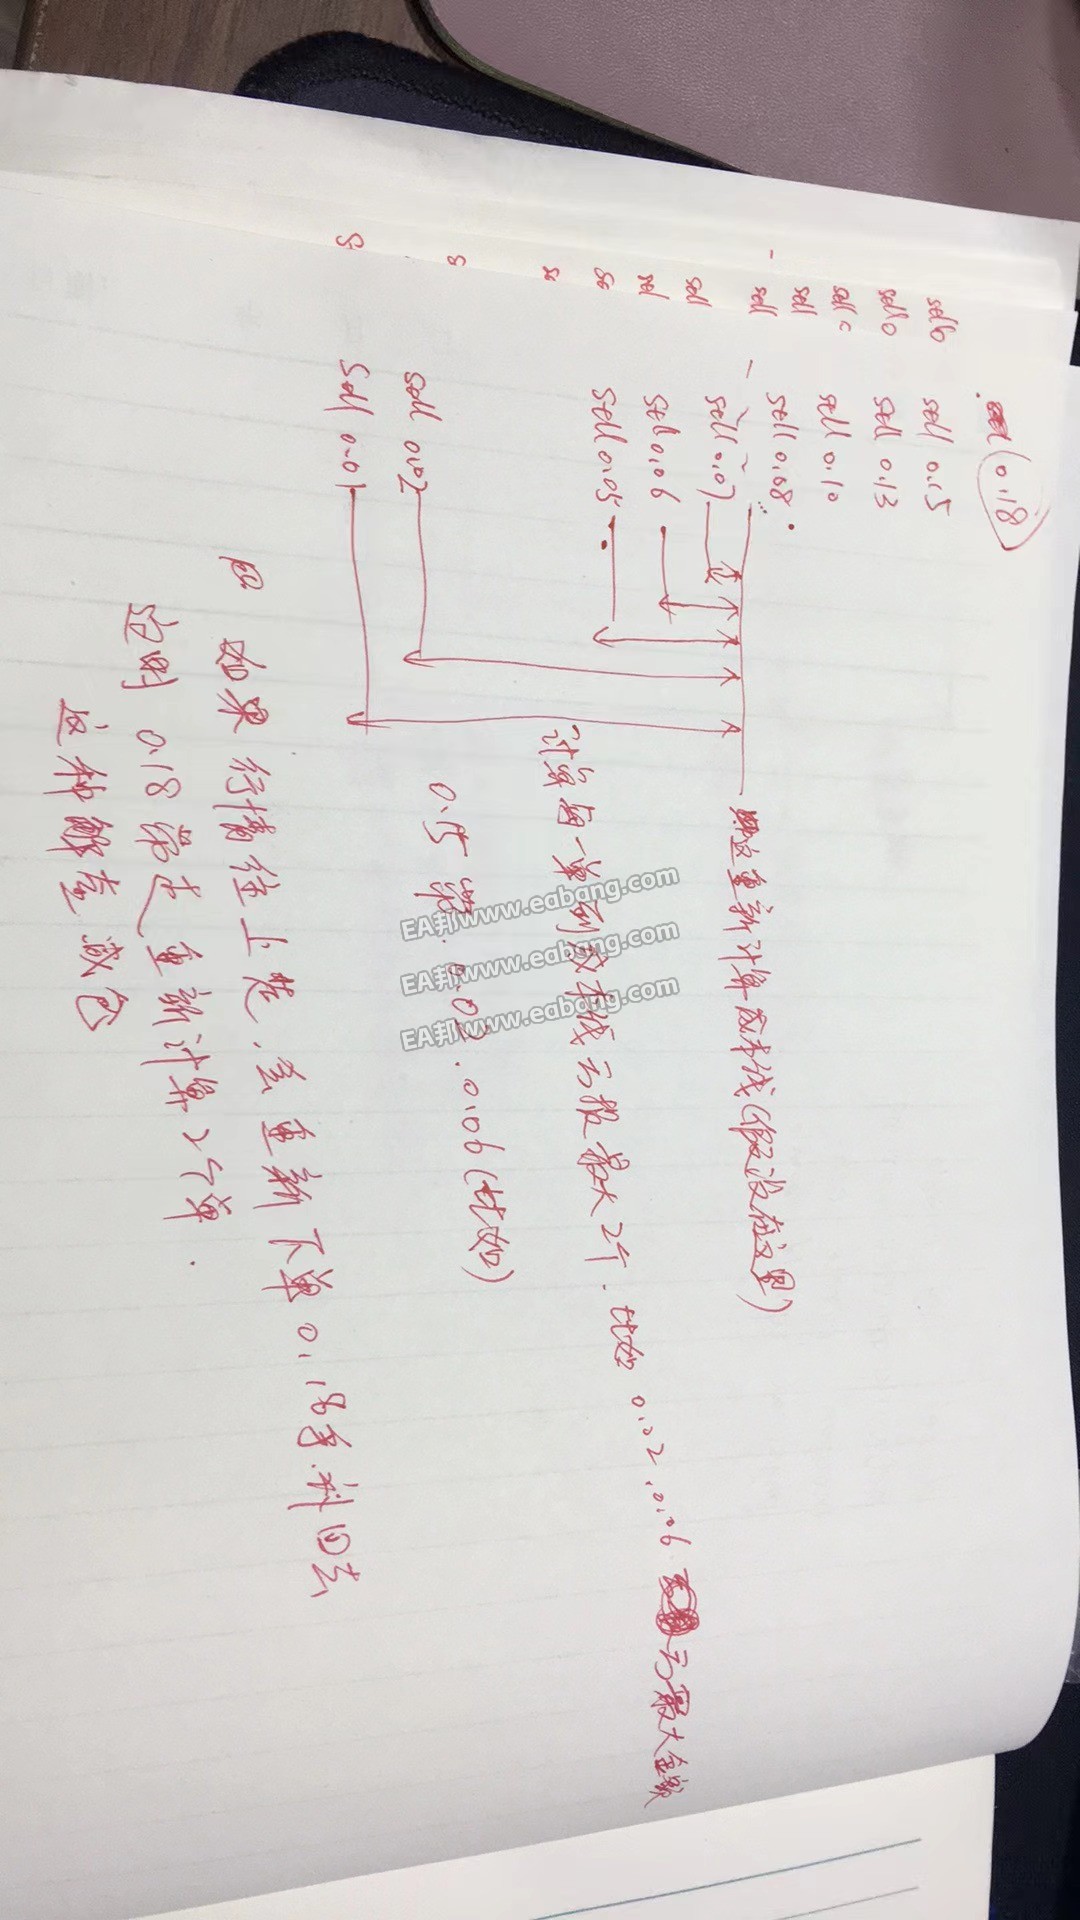 0.18
sell 0.15
sell 0.13
sell 0.10
sell 0.08
sell 0.07
sell 0.06
sell 0.05
sell 0.02
sell 0.01
重新计算成本线(假设在这里)
计算每一单到成本线亏损最大2个. 比如 0.02, 0.06. 亏最大金额
0.15 带. 0.02. 0.06 (比如)
如果行情往上走, 会重新下单 0.18 多. 利回去
这时 0.18 带走 重新计算 2个单.
这种解套 减仓
sell 0
sell 0
sell 0
sell
sell
sell
sel
se
se
s
s
EA邦www.eabang.com
EA邦www.eabang.com
EA邦www.eabang.com